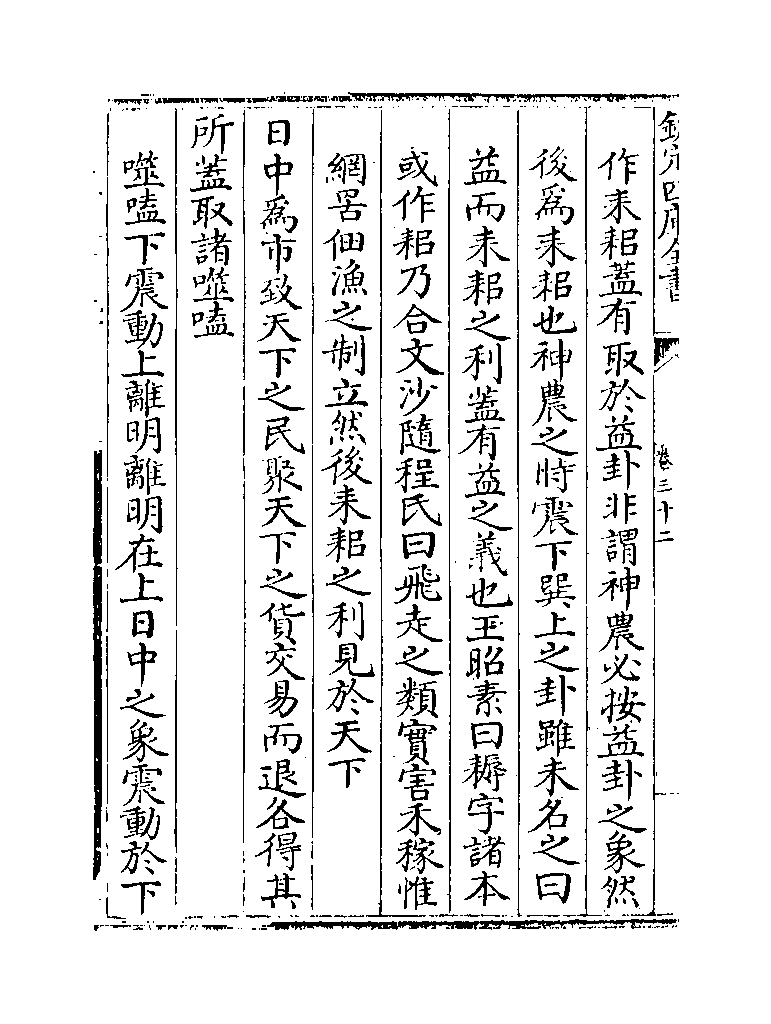 欽定四庫全書
卷三十二
作耒耜蓋有取於益卦非謂神農必按益卦之象然
後爲耒耜也神農之時震下巽上之卦雖未名之曰
益而耒耜之利葢有益之義也王昭素曰耨字諸本
或作耜乃合文沙隨程氏曰飛走之類實害禾稼惟
網罟佃漁之制立然後耒耜之利見於天下
日中爲市致天下之民聚天下之貨交易而退各得其
所蓋取諸噬嗑
噬嗑下震動上離明離明在上日中之象震動於下